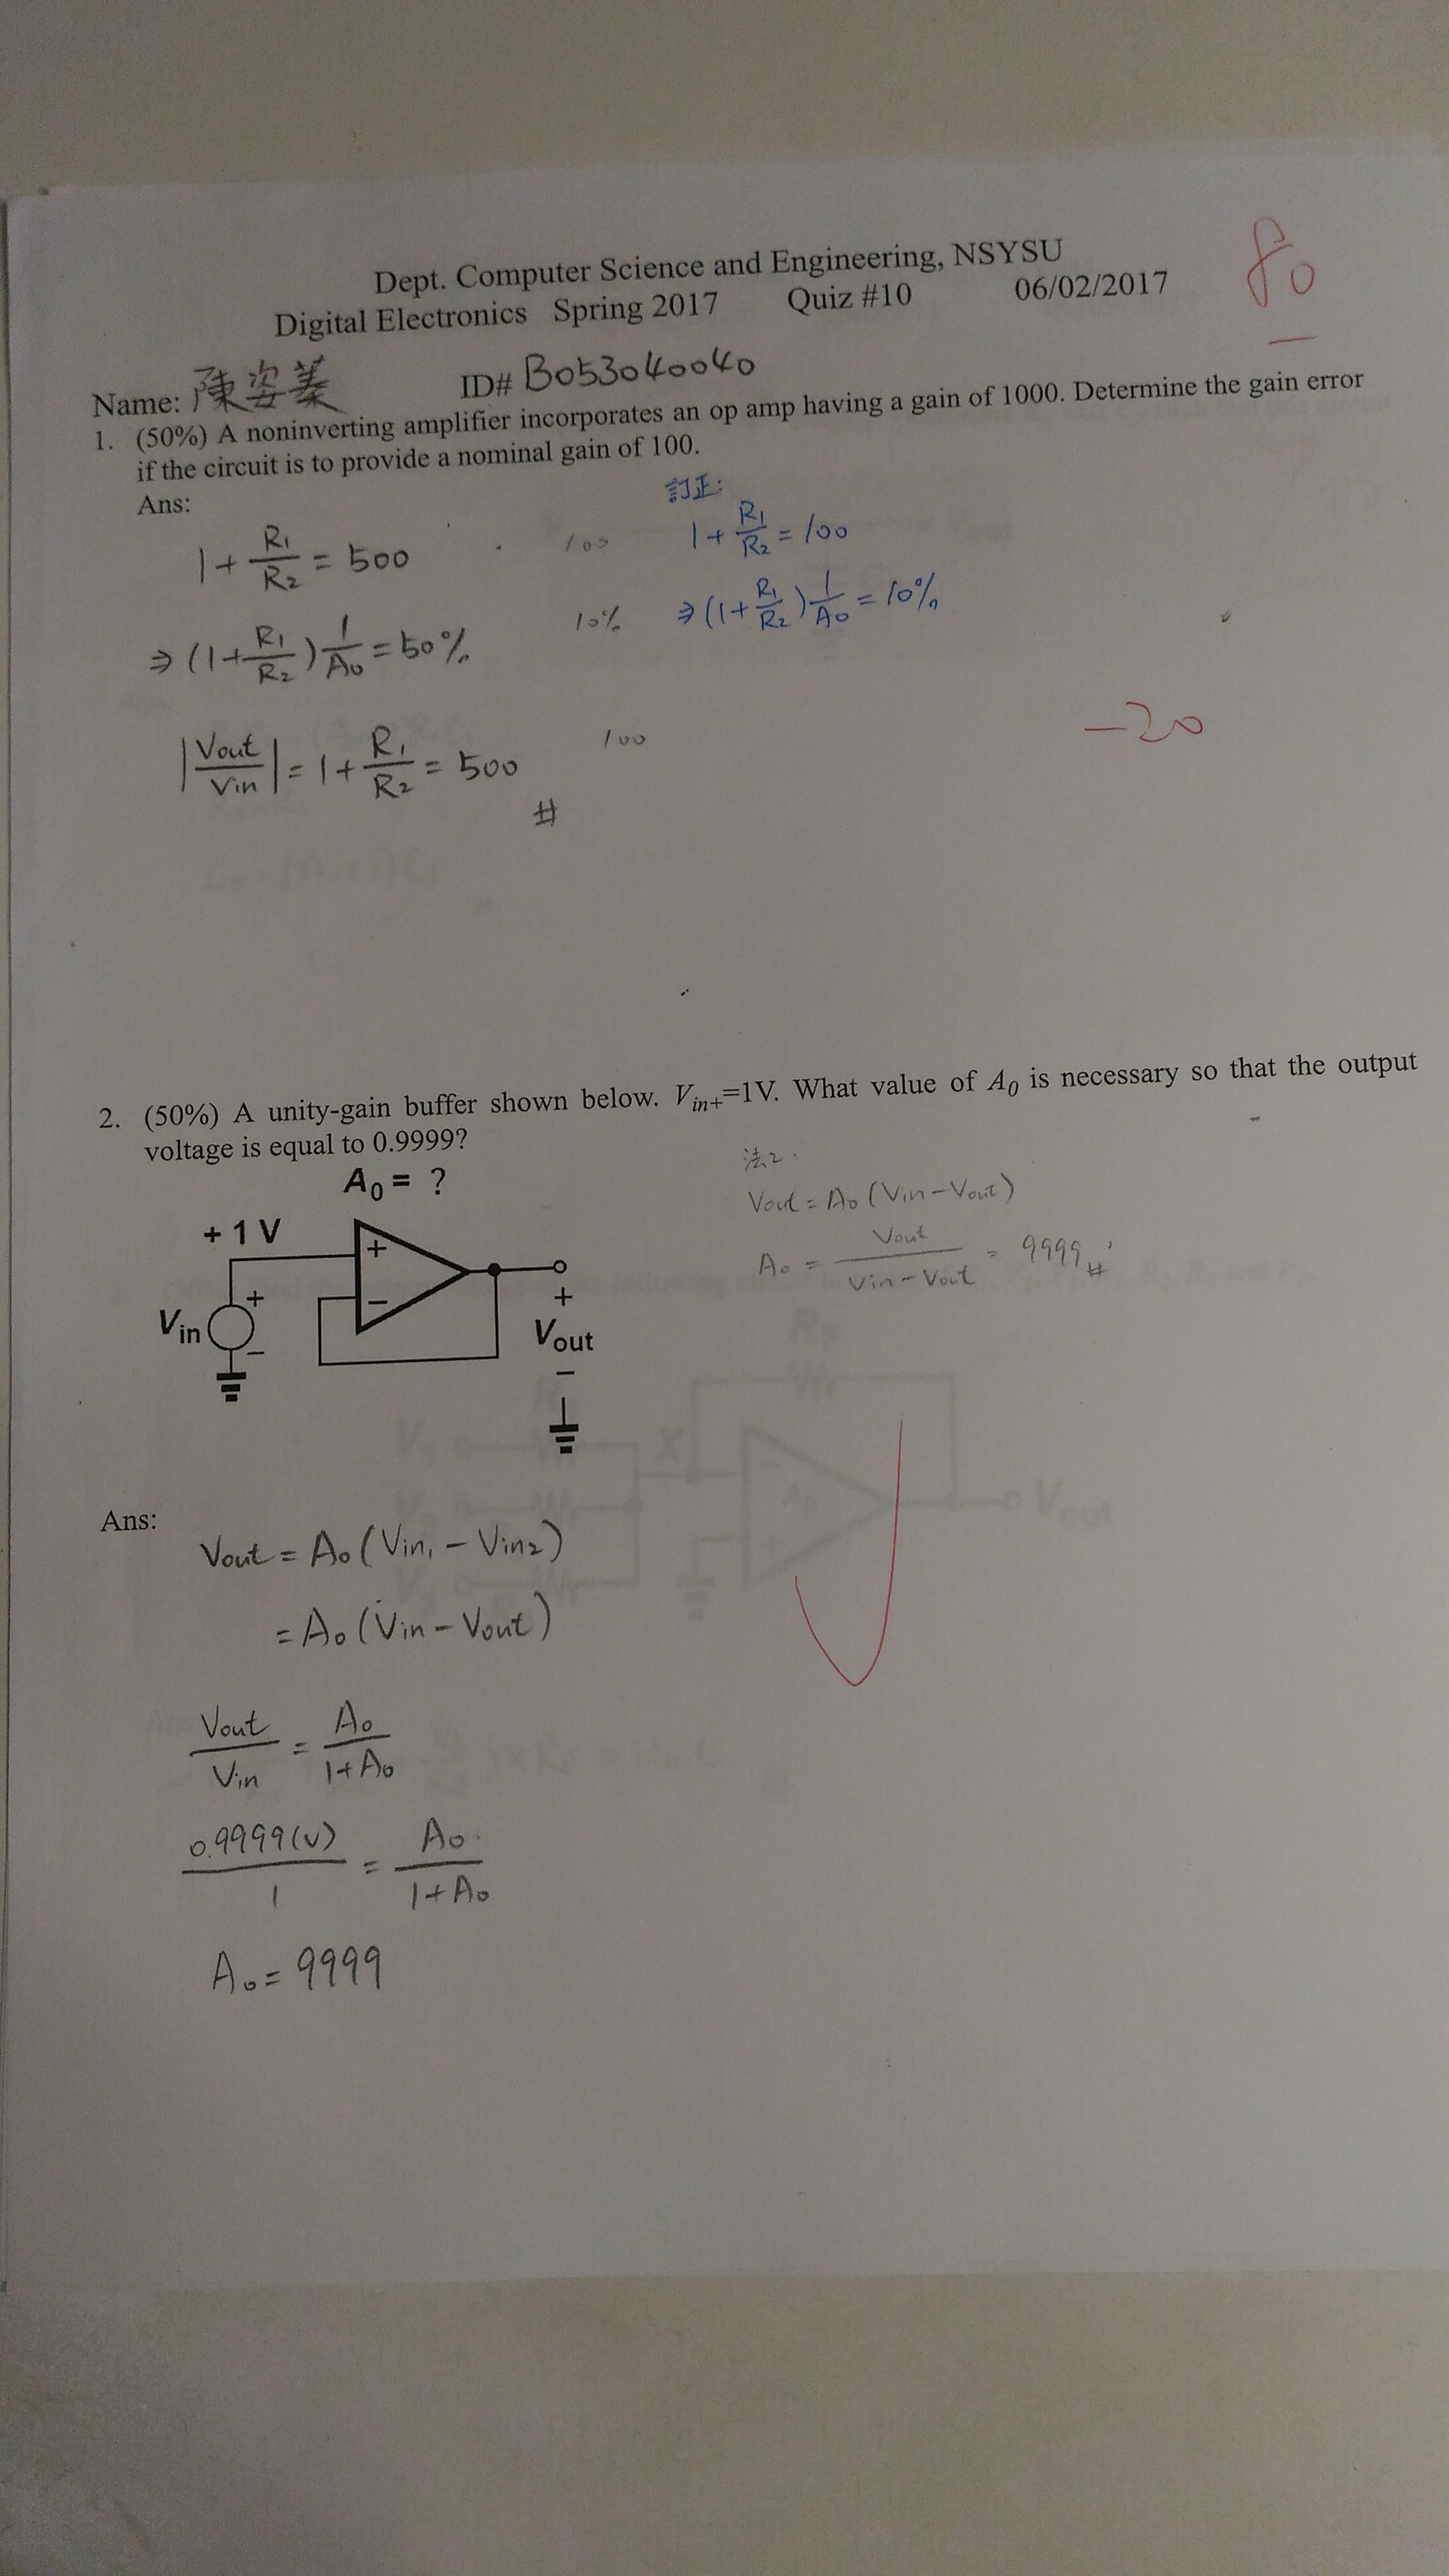 Dept. Computer Science and Engineering, NSYSU
Digital Electronics Spring 2017 Quiz #10 06/02/2017
80
Name: 陳姿蓁 ID# B053040040
1. (50%) A noninverting amplifier incorporates an op amp having a gain of 1000. Determine the gain error
if the circuit is to provide a nominal gain of 100.
Ans:
1 + R1/R2 = 500
100
⇒ (1 + R1/R2) 1/A0 = 50%
10%
|Vout/Vin| = 1 + R1/R2 = 500
100
#
訂正:
1 + R1/R2 = 100
⇒ (1 + R1/R2) 1/A0 = 10%
-20
2. (50%) A unity-gain buffer shown below. Vin+=1V. What value of A0 is necessary so that the output
voltage is equal to 0.9999?
A0 = ?
+ 1 V
+
−
Vin
+
−
+
Vout
−
法2.
Vout = A0 (Vin - Vout)
A0 = Vout/(Vin - Vout) = 9999 #
Ans:
Vout = A0 (Vin1 - Vin2)
= A0 (Vin - Vout)
Vout/Vin = A0/(1 + A0)
0.9999(V)/1 = A0/(1 + A0)
A0 = 9999